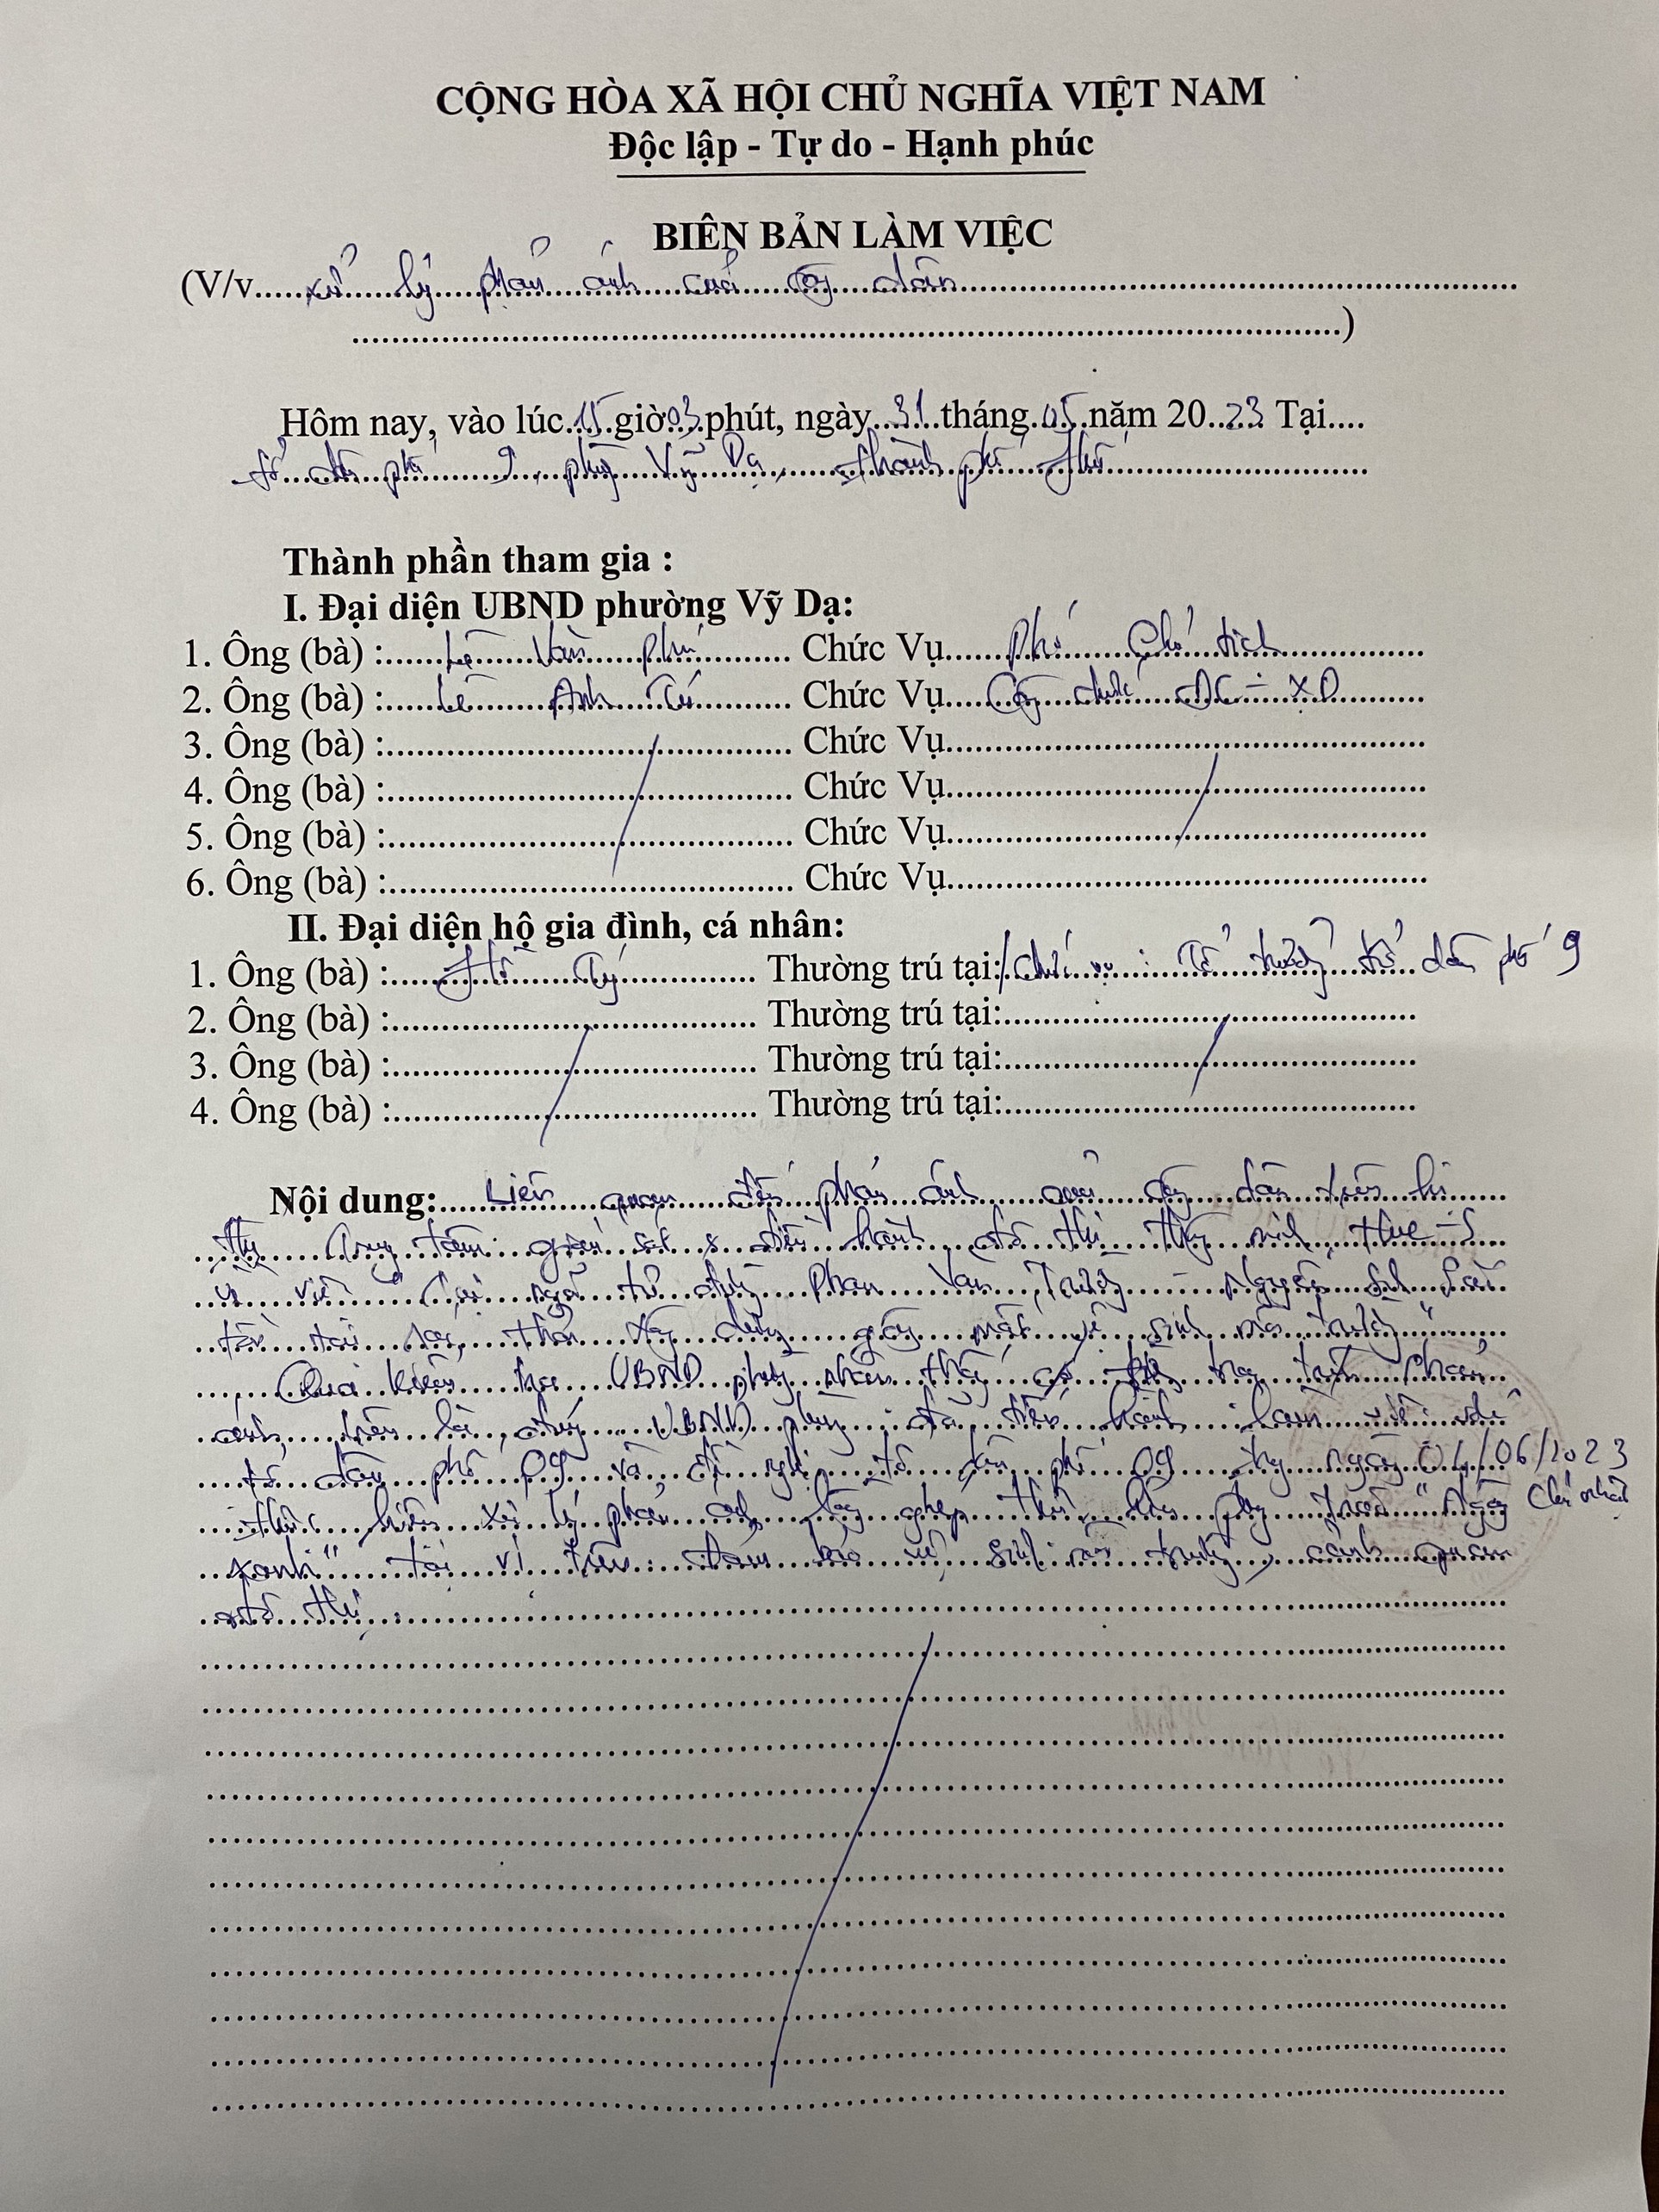 CỘNG HÒA XÃ HỘI CHỦ NGHĨA VIỆT NAM
Độc lập - Tự do - Hạnh phúc
BIÊN BẢN LÀM VIỆC
(V/v.....xử lý phản ánh của công dân..........
..........)
Hôm nay, vào lúc 15 giờ 03 phút, ngày 31 tháng 05 năm 20 23 Tại....
tổ dân phố 9, phường Vỹ Dạ, thành phố Huế
Thành phần tham gia :
I. Đại diện UBND phường Vỹ Dạ:
1. Ông (bà) : Lê Văn Phú Chức Vụ Phó Chủ tịch
2. Ông (bà) : Lê Anh Tú Chức Vụ Công chức ĐC - XD
3. Ông (bà) :.......... Chức Vụ..........
4. Ông (bà) :.......... Chức Vụ..........
5. Ông (bà) :.......... Chức Vụ..........
6. Ông (bà) :.......... Chức Vụ..........
II. Đại diện hộ gia đình, cá nhân:
1. Ông (bà) : Hồ Tý Thường trú tại:/ chức vụ : Tổ trưởng tổ dân phố 9
2. Ông (bà) :.......... Thường trú tại:..........
3. Ông (bà) :.......... Thường trú tại:..........
4. Ông (bà) :.......... Thường trú tại:..........
Nội dung: Liên quan đến phản ánh của công dân trên
Trung tâm giám sát & điều hành đô thị thông minh, Hue-S
về việc "Tại ngã tư đường Phan Văn Trường - Nguyễn Sinh
tồn tại rác thải xây dựng gây mất vệ sinh môi trường"
Qua kiểm tra UBND phường nhận thấy phản
ánh trên là đúng UBND phường đã tiến hành làm việc với
tổ dân phố 09 và đề nghị tổ dân phố 09 trong ngày 04/06/2023
Chủ nhật
thực hiện xử lý phản ánh lồng ghép thực hiện phong trào "Ngày
xanh" tại vị trí trên đảm bảo vệ sinh môi trường, cảnh quan
đô thị.